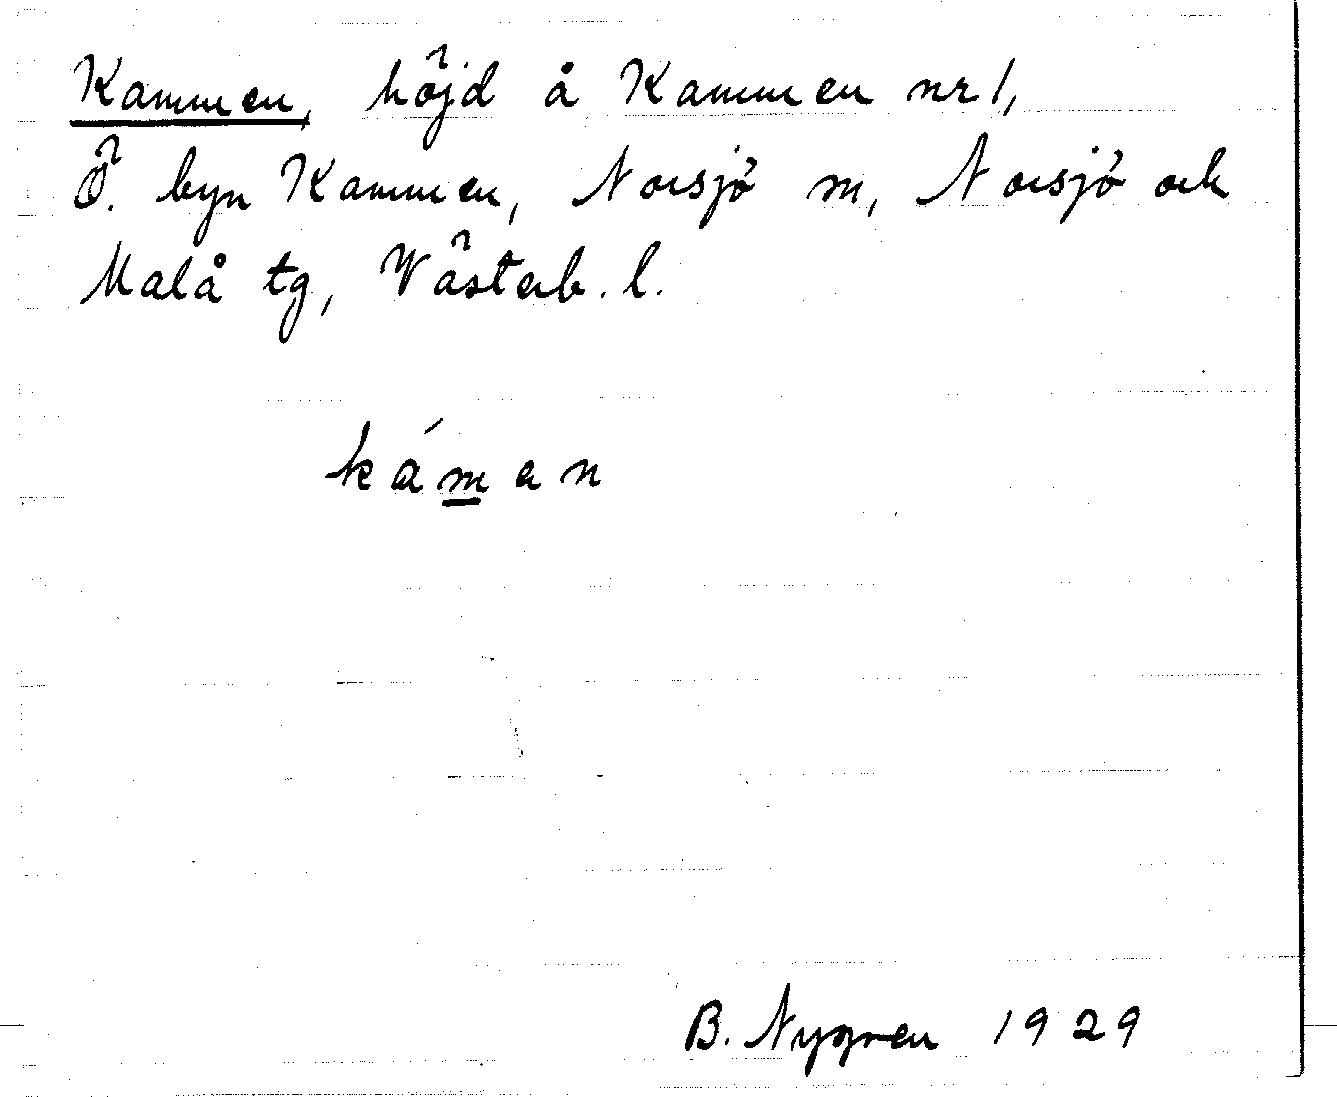 Kammen, höjd å Kammen nr 1,
Ö. byn Kammen, Norsjö m, Norsjö och
Malå tg, Västerb. l.
kám̲en
B. Nygren 1929